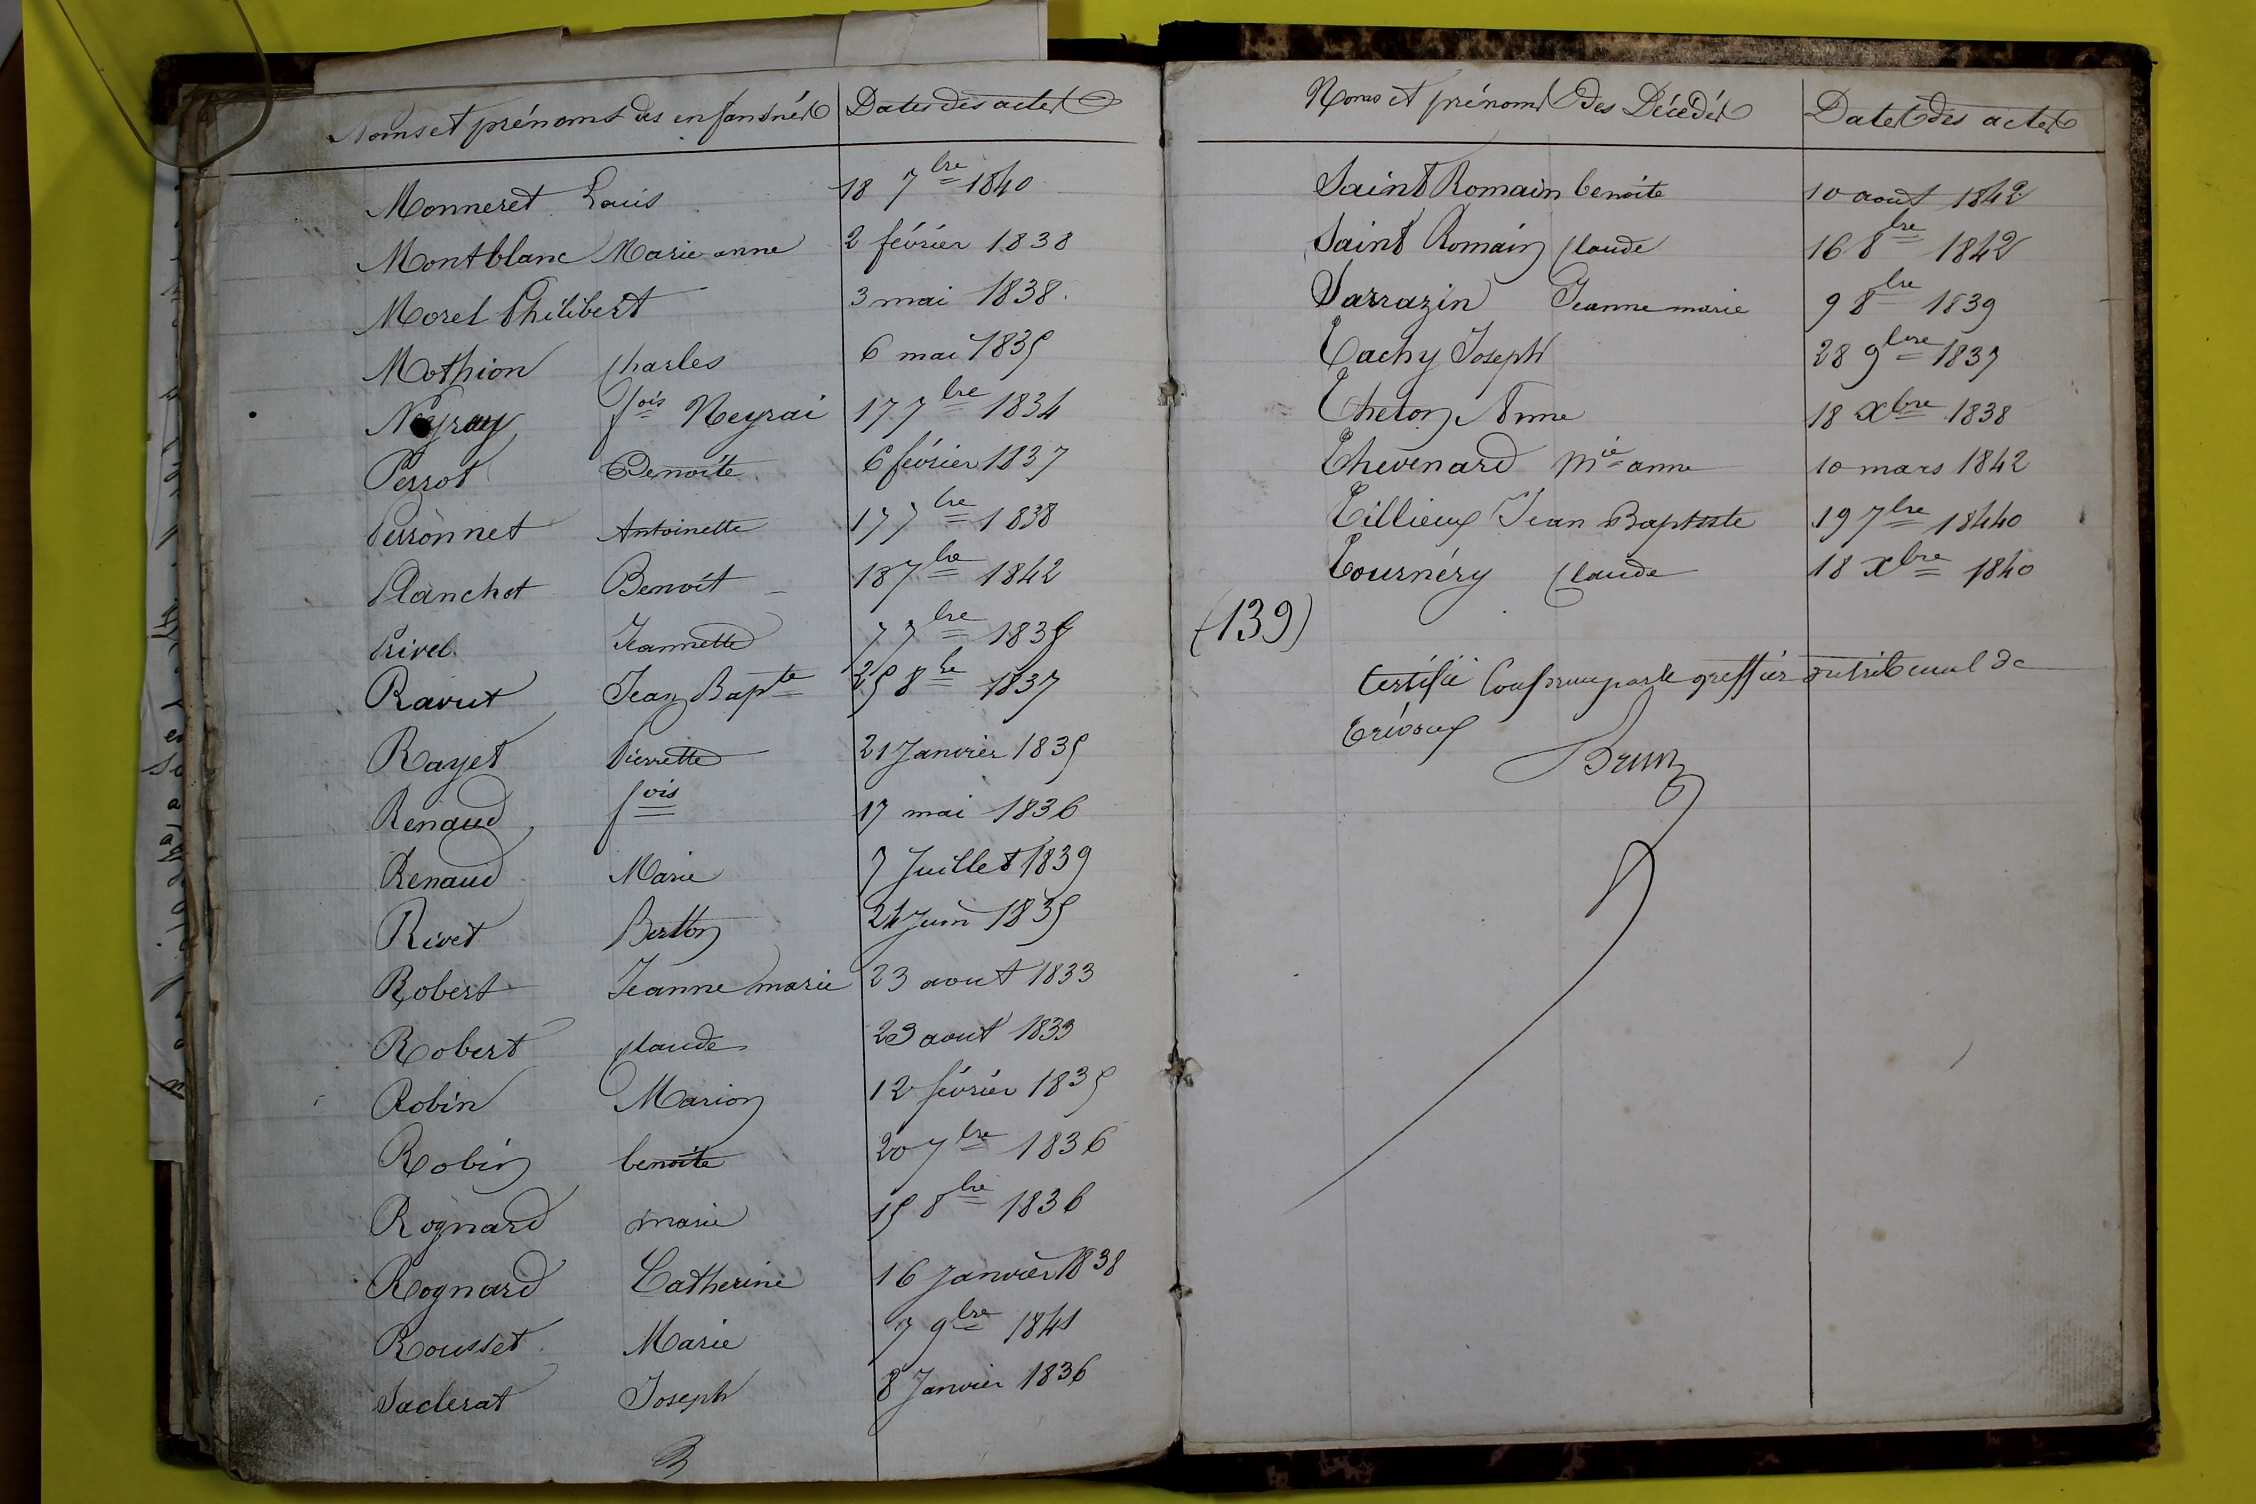 Noms et prénoms des enfans nés Dates des actes
Monneret Louis 18 7bre 1840
Montblanc Marie anne 2 février 1838
Morel Philibert 3 mai 1838.
Mothion Charles 6 mai 1835
Neyray fois Neyrai 17 7bre 1834
Perrot Benoite 6 février 1837
Perronnet Antoinette 17 7bre 1838
Planchet Benoit 18 7bre 1842
Privel Jeannette 7 7bre
Ravut Jean Bapte 25 8bre 1837
Rayet Pierrette 21 Janvier 1835
Renaud fois 17 mai 1836
Renaud Marie 7 Juillet 1839
Rivet Berthon 24 Juin 1835
Robert Jeanne marie 23 aout 1833
Robert Claude 23 aout 1833
Robin Marion 12 février 1835
Robin benoite 20 7bre 1836
Rognard marie 15 8bre 1836
Rognard Catherine 16 Janvier 1838
Rousset Marie 7 9bre 1841
Saclerat Joseph 8 Janvier 1836
Noms et prénoms des Décédés Dates des actes
Saint Romain benoite 10 aout 1842
Saint Romain Claude 16 8bre 1842
Sarrazin Jeanne marie 9 8bre 1839
Tachy Joseph 28 9bre 1837
Theton Anne 18 xbre 1838
Thevenard Mie anne 10 mars 1842
Tillieux Jean Baptiste 19 7bre 18440
Tournéry Claude 18 xbre 1840
(139)
Certifié Conforme par le greffier du tribunal de
Trévoux
Brun